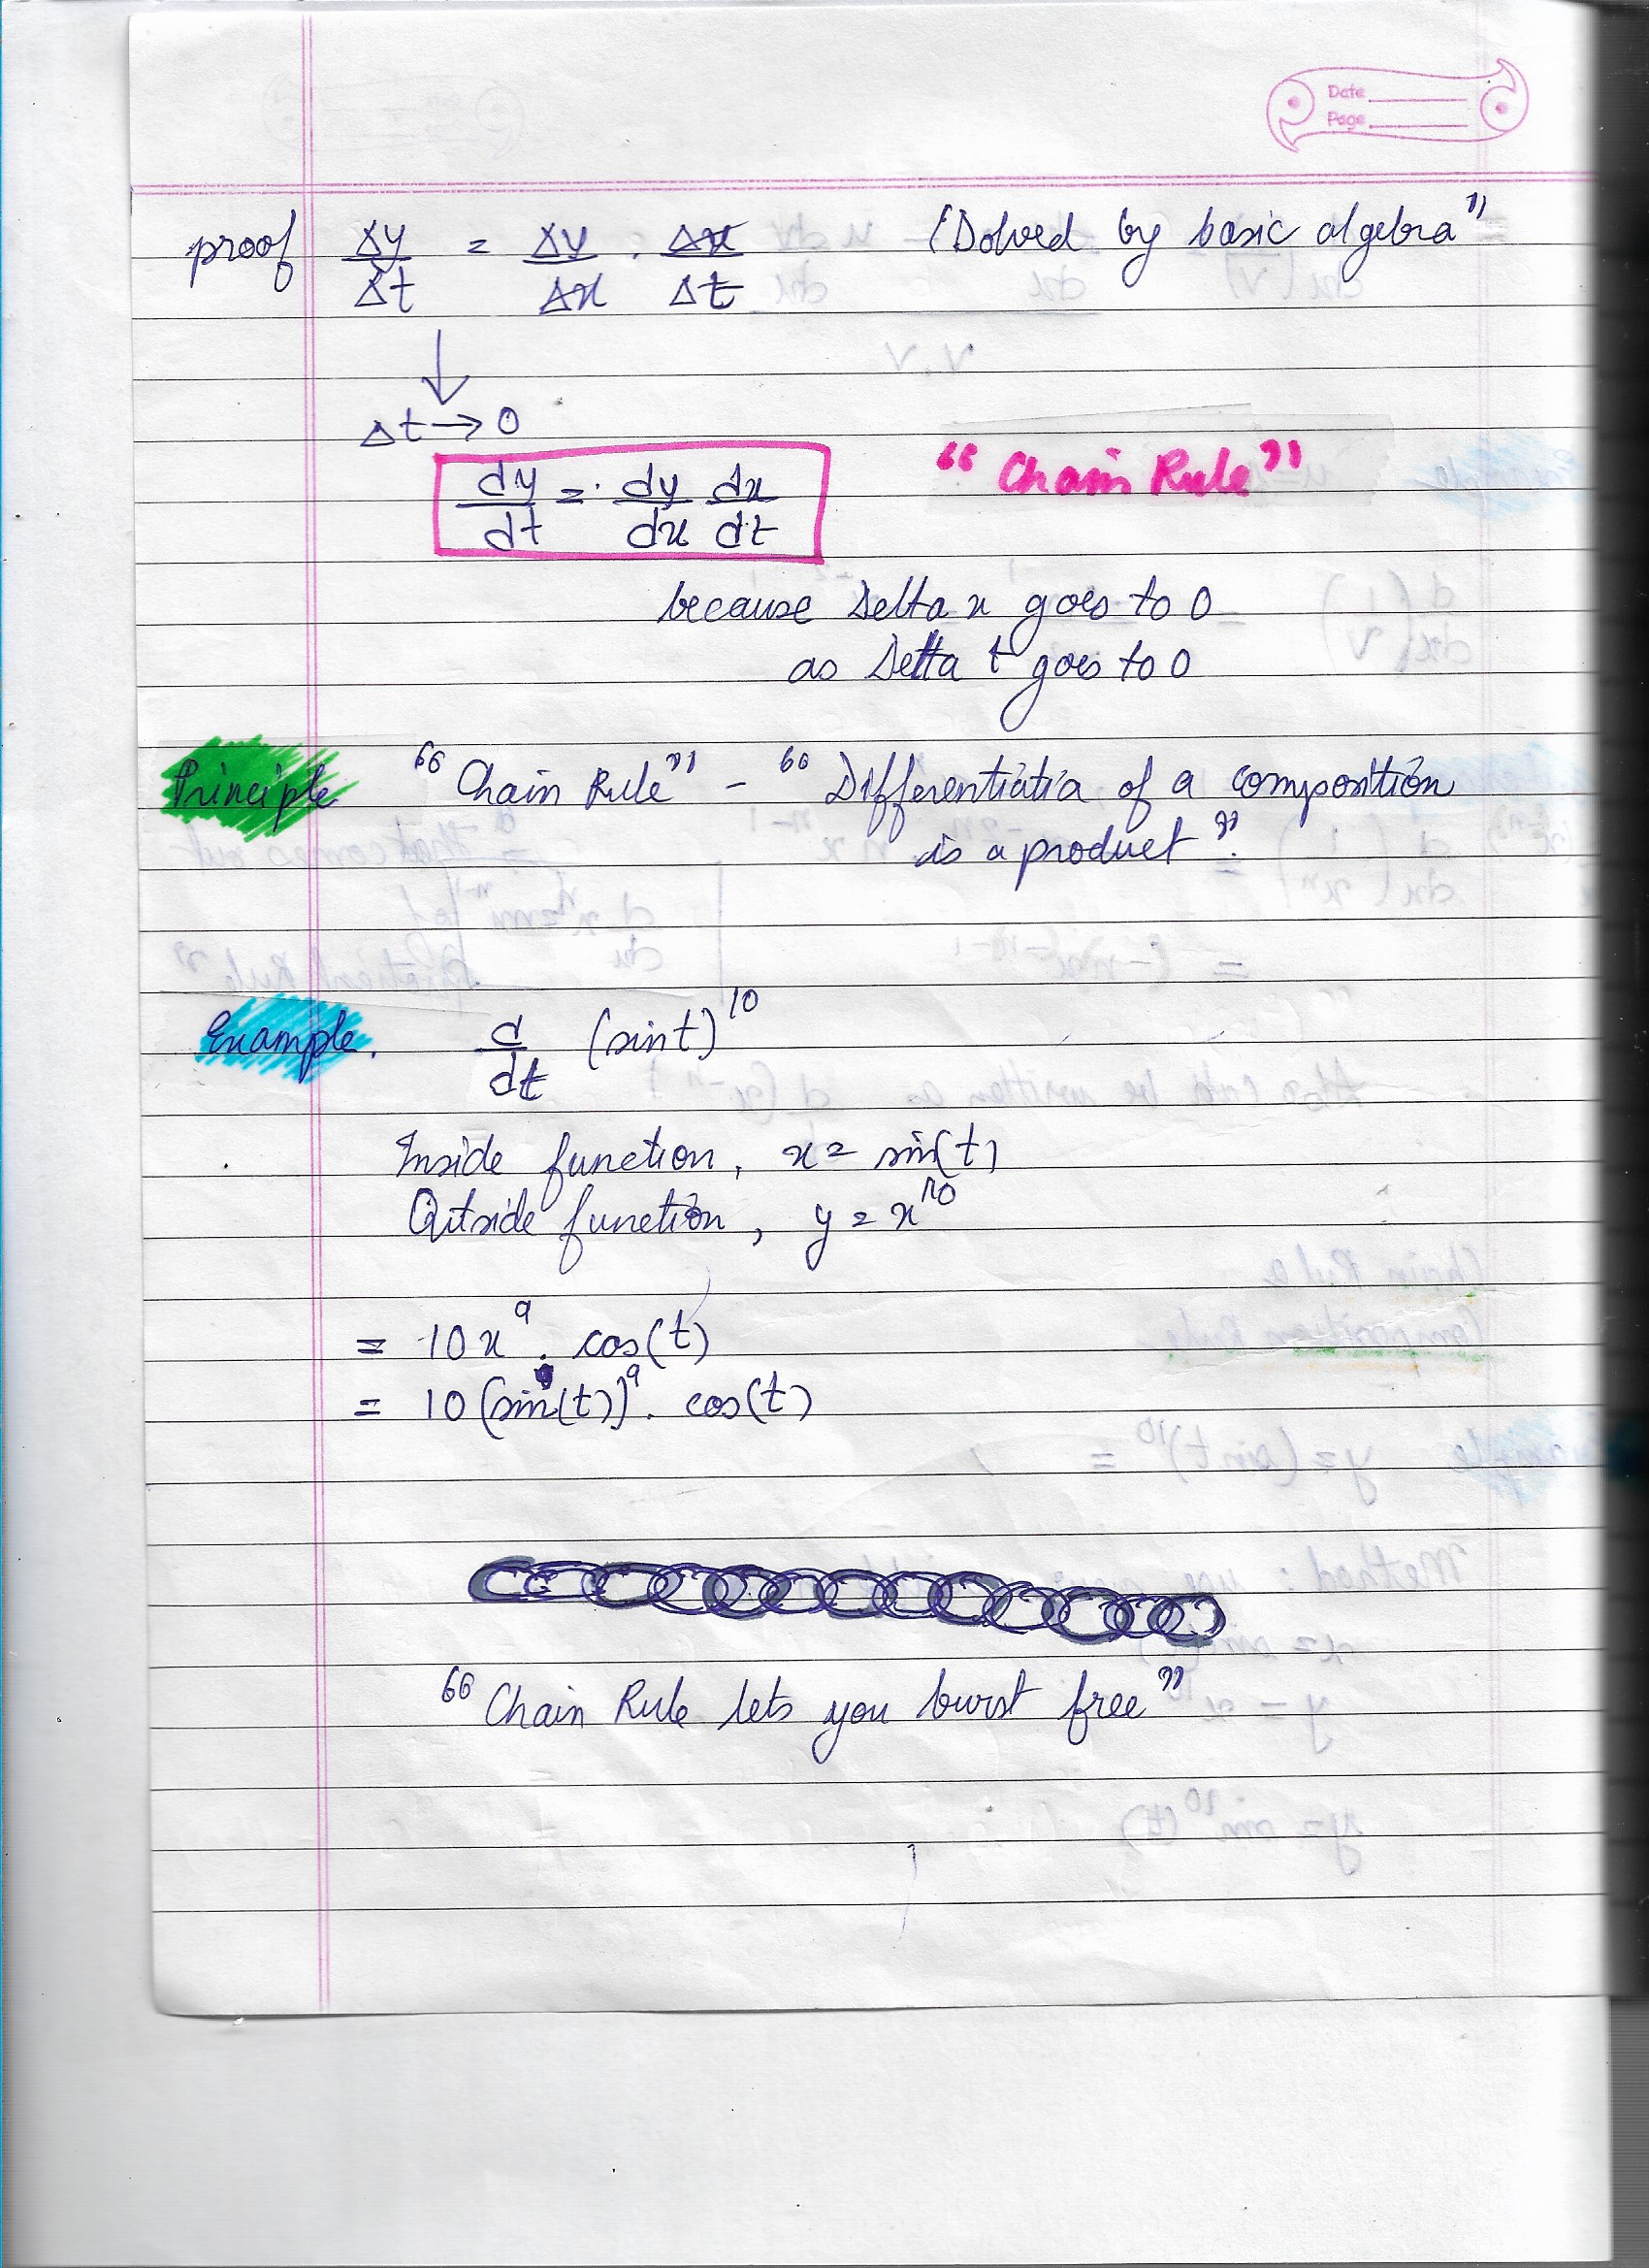 Date
Page
proof Δy/Δt = Δy/Δx . Δx/Δt "Solved by basic algebra"
↓
Δt → 0
dy/dt = dy/dx dx/dt "Chain Rule"
because Delta x goes to 0
as Delta t goes to 0
Principle "Chain Rule" - "Differentiatia of a composition
is a product".
Example. d/dt (sin t)^10
Inside function, x = sin(t)
Outside function, y = x^10
= 10x^9 . cos(t)
= 10 (sin(t))^9 . cos(t)
"Chain Rule lets you burst free"